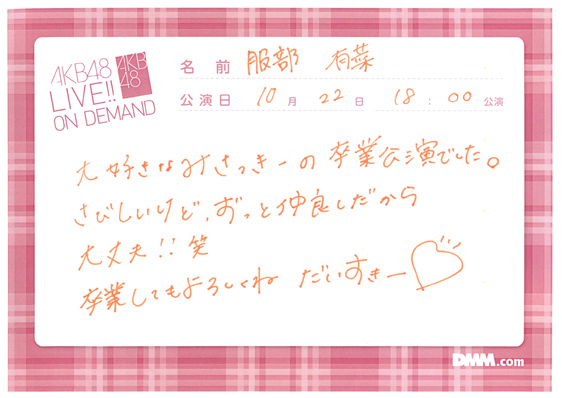 AKB48
LIVE!!
ON DEMAND
AKB
48
名 前 服部 有菜
公演日 10月 22日 18:00公演
大好きなみさっきーの卒業公演でした。
さびしいけど、ずっと仲良しだから
大丈夫!!笑
卒業してもよろしくね だいすきー
DMM.com